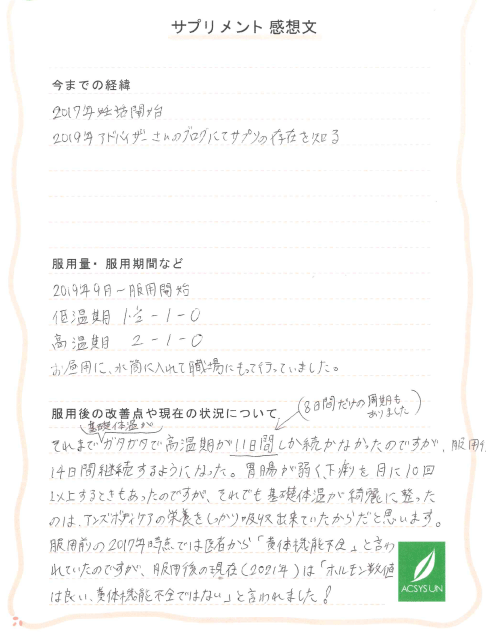 サプリメント 感想文
今までの経緯
2017年 妊活開始
2019年 アドバイザーさんのブログにてサプリの存在を知る
服用量・服用期間など
2019年9月〜服用開始
低温期 1.½ - 1 - 0
高温期 2 - 1 - 0
お昼用に、水筒に入れて職場にもって行っていました。
服用後の改善点や現在の状況について
(8日間だけの周期も
ありました)
基礎体温が
それまでガタガタで高温期が11日間しか続かなかったのですが、服用
14日間継続するようになった。胃腸が弱く、下痢を月に10回
以上するときもあったのですが、それでも基礎体温が綺麗に整った
のは、アンズボディケアの栄養をしっかり吸収出来ていたからだと思います。
服用前の2017年時点では医者から「黄体機能不全」と言わ
れていたのですが、服用後の現在(2021年)は「ホルモン数値
は良い、黄体機能不全ではない」と言われました!
ACSYSUN